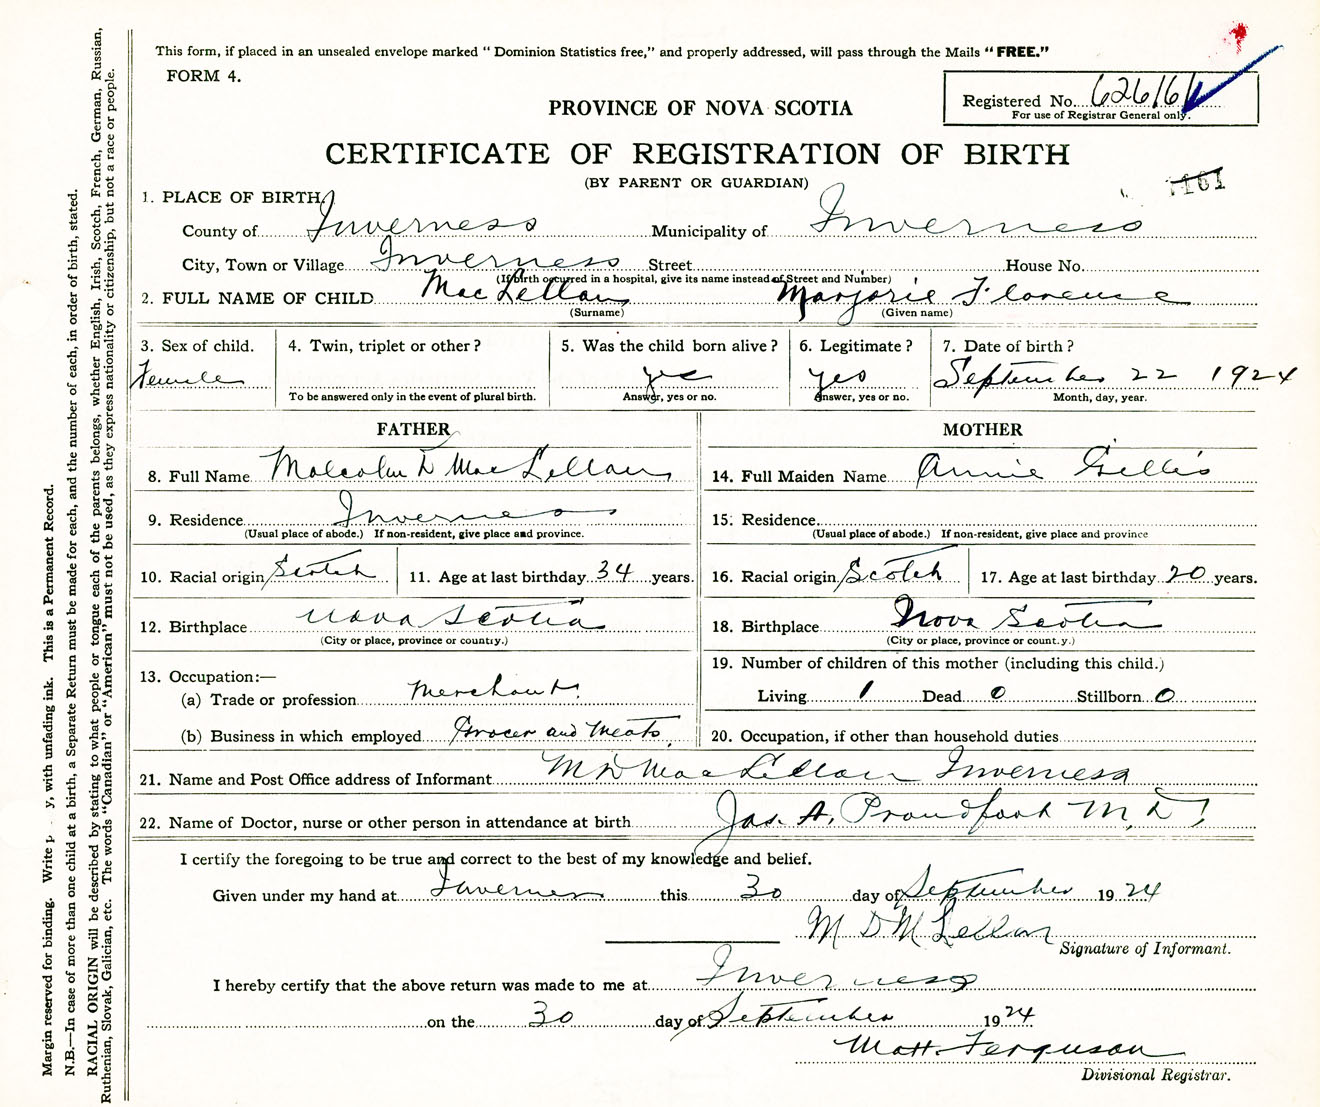 This form, if placed in an unsealed envelope marked “ Dominion Statistics free,” and properly addressed, will pass through the Mails “ FREE.”
FORM 4.
Registered No. 626161
For use of Registrar General only.
PROVINCE OF NOVA SCOTIA
CERTIFICATE OF REGISTRATION OF BIRTH
(BY PARENT OR GUARDIAN)
1. PLACE OF BIRTH,
County of Inverness Municipality of Inverness
City, Town or Village Inverness Street House No.
(If birth occurred in a hospital, give its name instead of Street and Number)
2. FULL NAME OF CHILD MacLellan Marjorie Florence
(Surname) (Given name)
3. Sex of child. 4. Twin, triplet or other? 5. Was the child born alive? 6. Legitimate? 7. Date of birth?
Female yes yes September 22 1924
To be answered only in the event of plural birth. Answer, yes or no. Answer, yes or no. Month, day, year.
FATHER MOTHER
8. Full Name Malcolm D MacLellan 14. Full Maiden Name Annie Gillis
9. Residence Inverness 15. Residence
(Usual place of abode.) If non-resident, give place and province. (Usual place of abode.) If non-resident, give place and province
10. Racial origin Scotch 11. Age at last birthday 34 years. 16. Racial origin Scotch 17. Age at last birthday 20 years.
12. Birthplace Nova Scotia 18. Birthplace Nova Scotia
(City or place, province or country.) (City or place, province or count.y.)
19. Number of children of this mother (including this child.)
13. Occupation:—
(a) Trade or profession Merchant. Living 1 Dead 0 Stillborn 0
(b) Business in which employed Grocer and Meats, 20. Occupation, if other than household duties
21. Name and Post Office address of Informant M D MacLellan Inverness
22. Name of Doctor, nurse or other person in attendance at birth Jas. A. Proudfoot M.D.
I certify the foregoing to be true and correct to the best of my knowledge and belief.
Given under my hand at Inverness this 30 day of September 1924
M D McLellan
Signature of Informant.
I hereby certify that the above return was made to me at Inverness
on the 30 day of September 1924
Matt. Ferguson
Divisional Registrar.
Margin reserved for binding. Write y, with unfading ink. This is a Permanent Record.
N.B.—In case of more than one child at a birth, a Separate Return must be made for each, and the number of each, in order of birth, stated.
RACIAL ORIGIN will be described by stating to what people or tongue each of the parents belongs, whether English, Irish, Scotch, French, German, Russian,
Ruthenian, Slovak, Galician, etc. The words “Canadian” or “American” must not be used, as they express nationality or citizenship, but not a race or people.